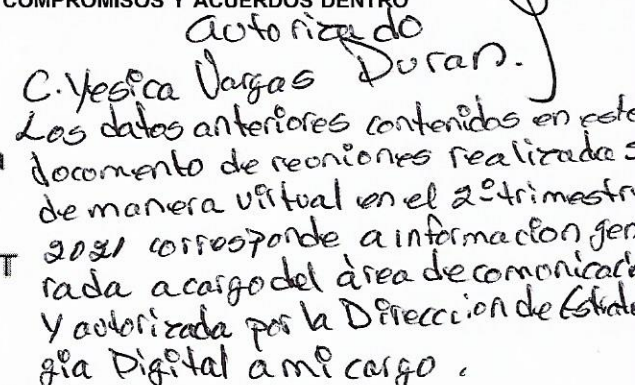 COMPROMISOS Y ACUERDOS DENTRO
autorizado
C. Yesica Vargas Duran.
Los datos anteriores contenidos en este
documento de reoniones realizadas
de manera virtual en el 2º trimestr
2021 corresponde a informacion gen
T
rada a cargo del área de comonicaci
y autorizada por la Direccion de Estrate
gia Digital a mi cargo.